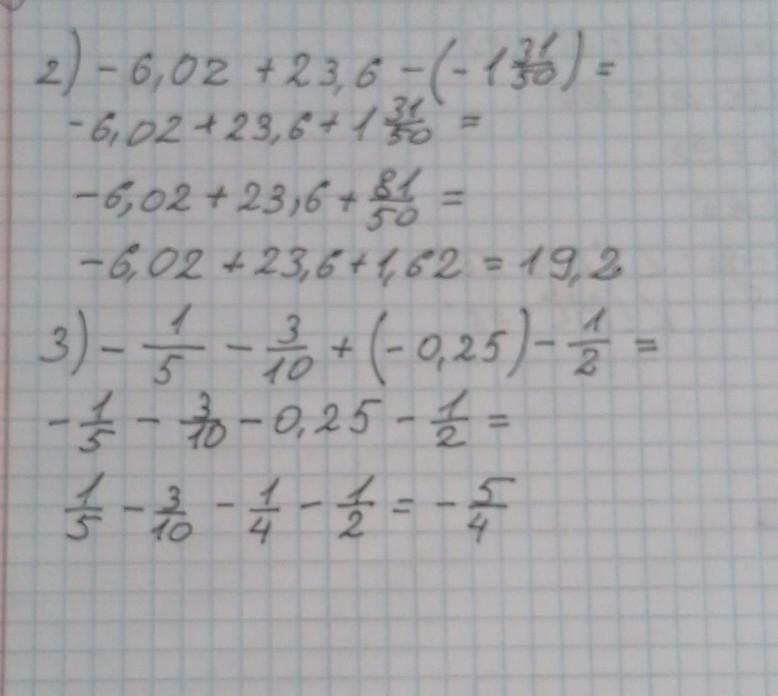 2) - 6,02 + 23,6 - (- 1 31/50) =
- 6,02 + 23,6 + 1 31/50 =
- 6,02 + 23,6 + 81/50 =
- 6,02 + 23,6 + 1,62 = 19,2
3) - 1/5 - 3/10 + (- 0,25) - 1/2 =
- 1/5 - 3/10 - 0,25 - 1/2 =
1/5 - 3/10 - 1/4 - 1/2 = - 5/4